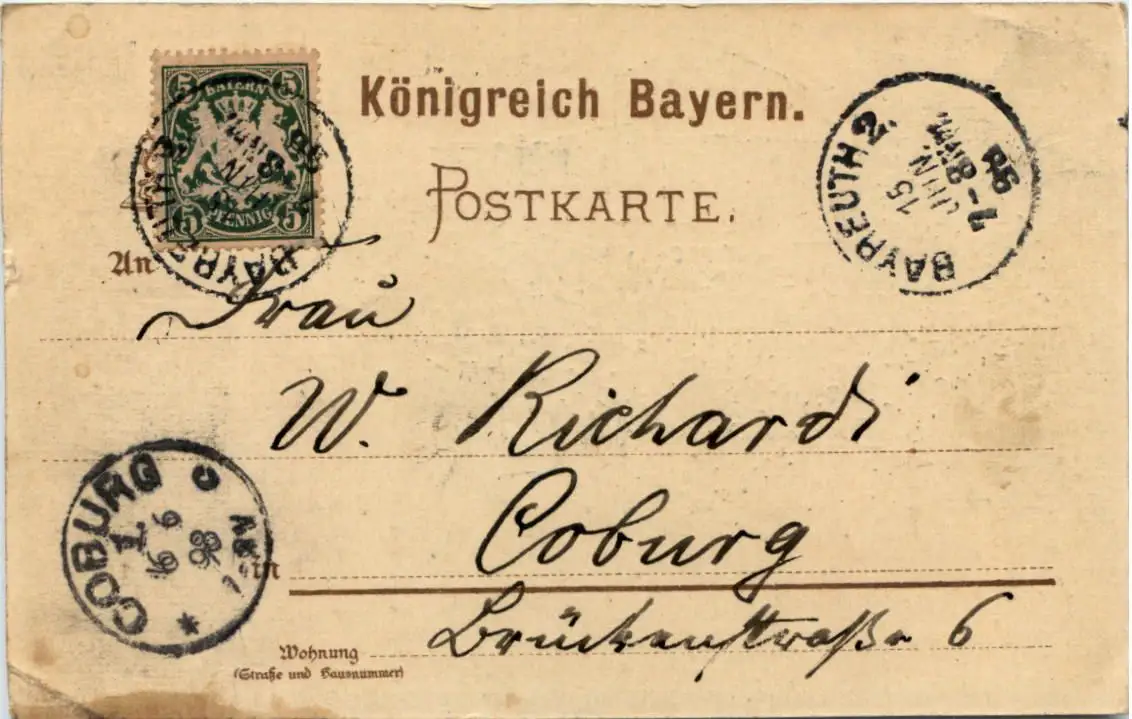 Königreich Bayern.
5 BAYERN 5
5 PFENNIG 5
POSTKARTE.
BAYREUTH 2.
15
JUN
7-8 NM
BAYREUTH
JUN
An
Frau
W. Richardi
Coburg
COBURG 1.
16 6
98
in
Brückenstraße 6
Wohnung
(Straße und Hausnummer)